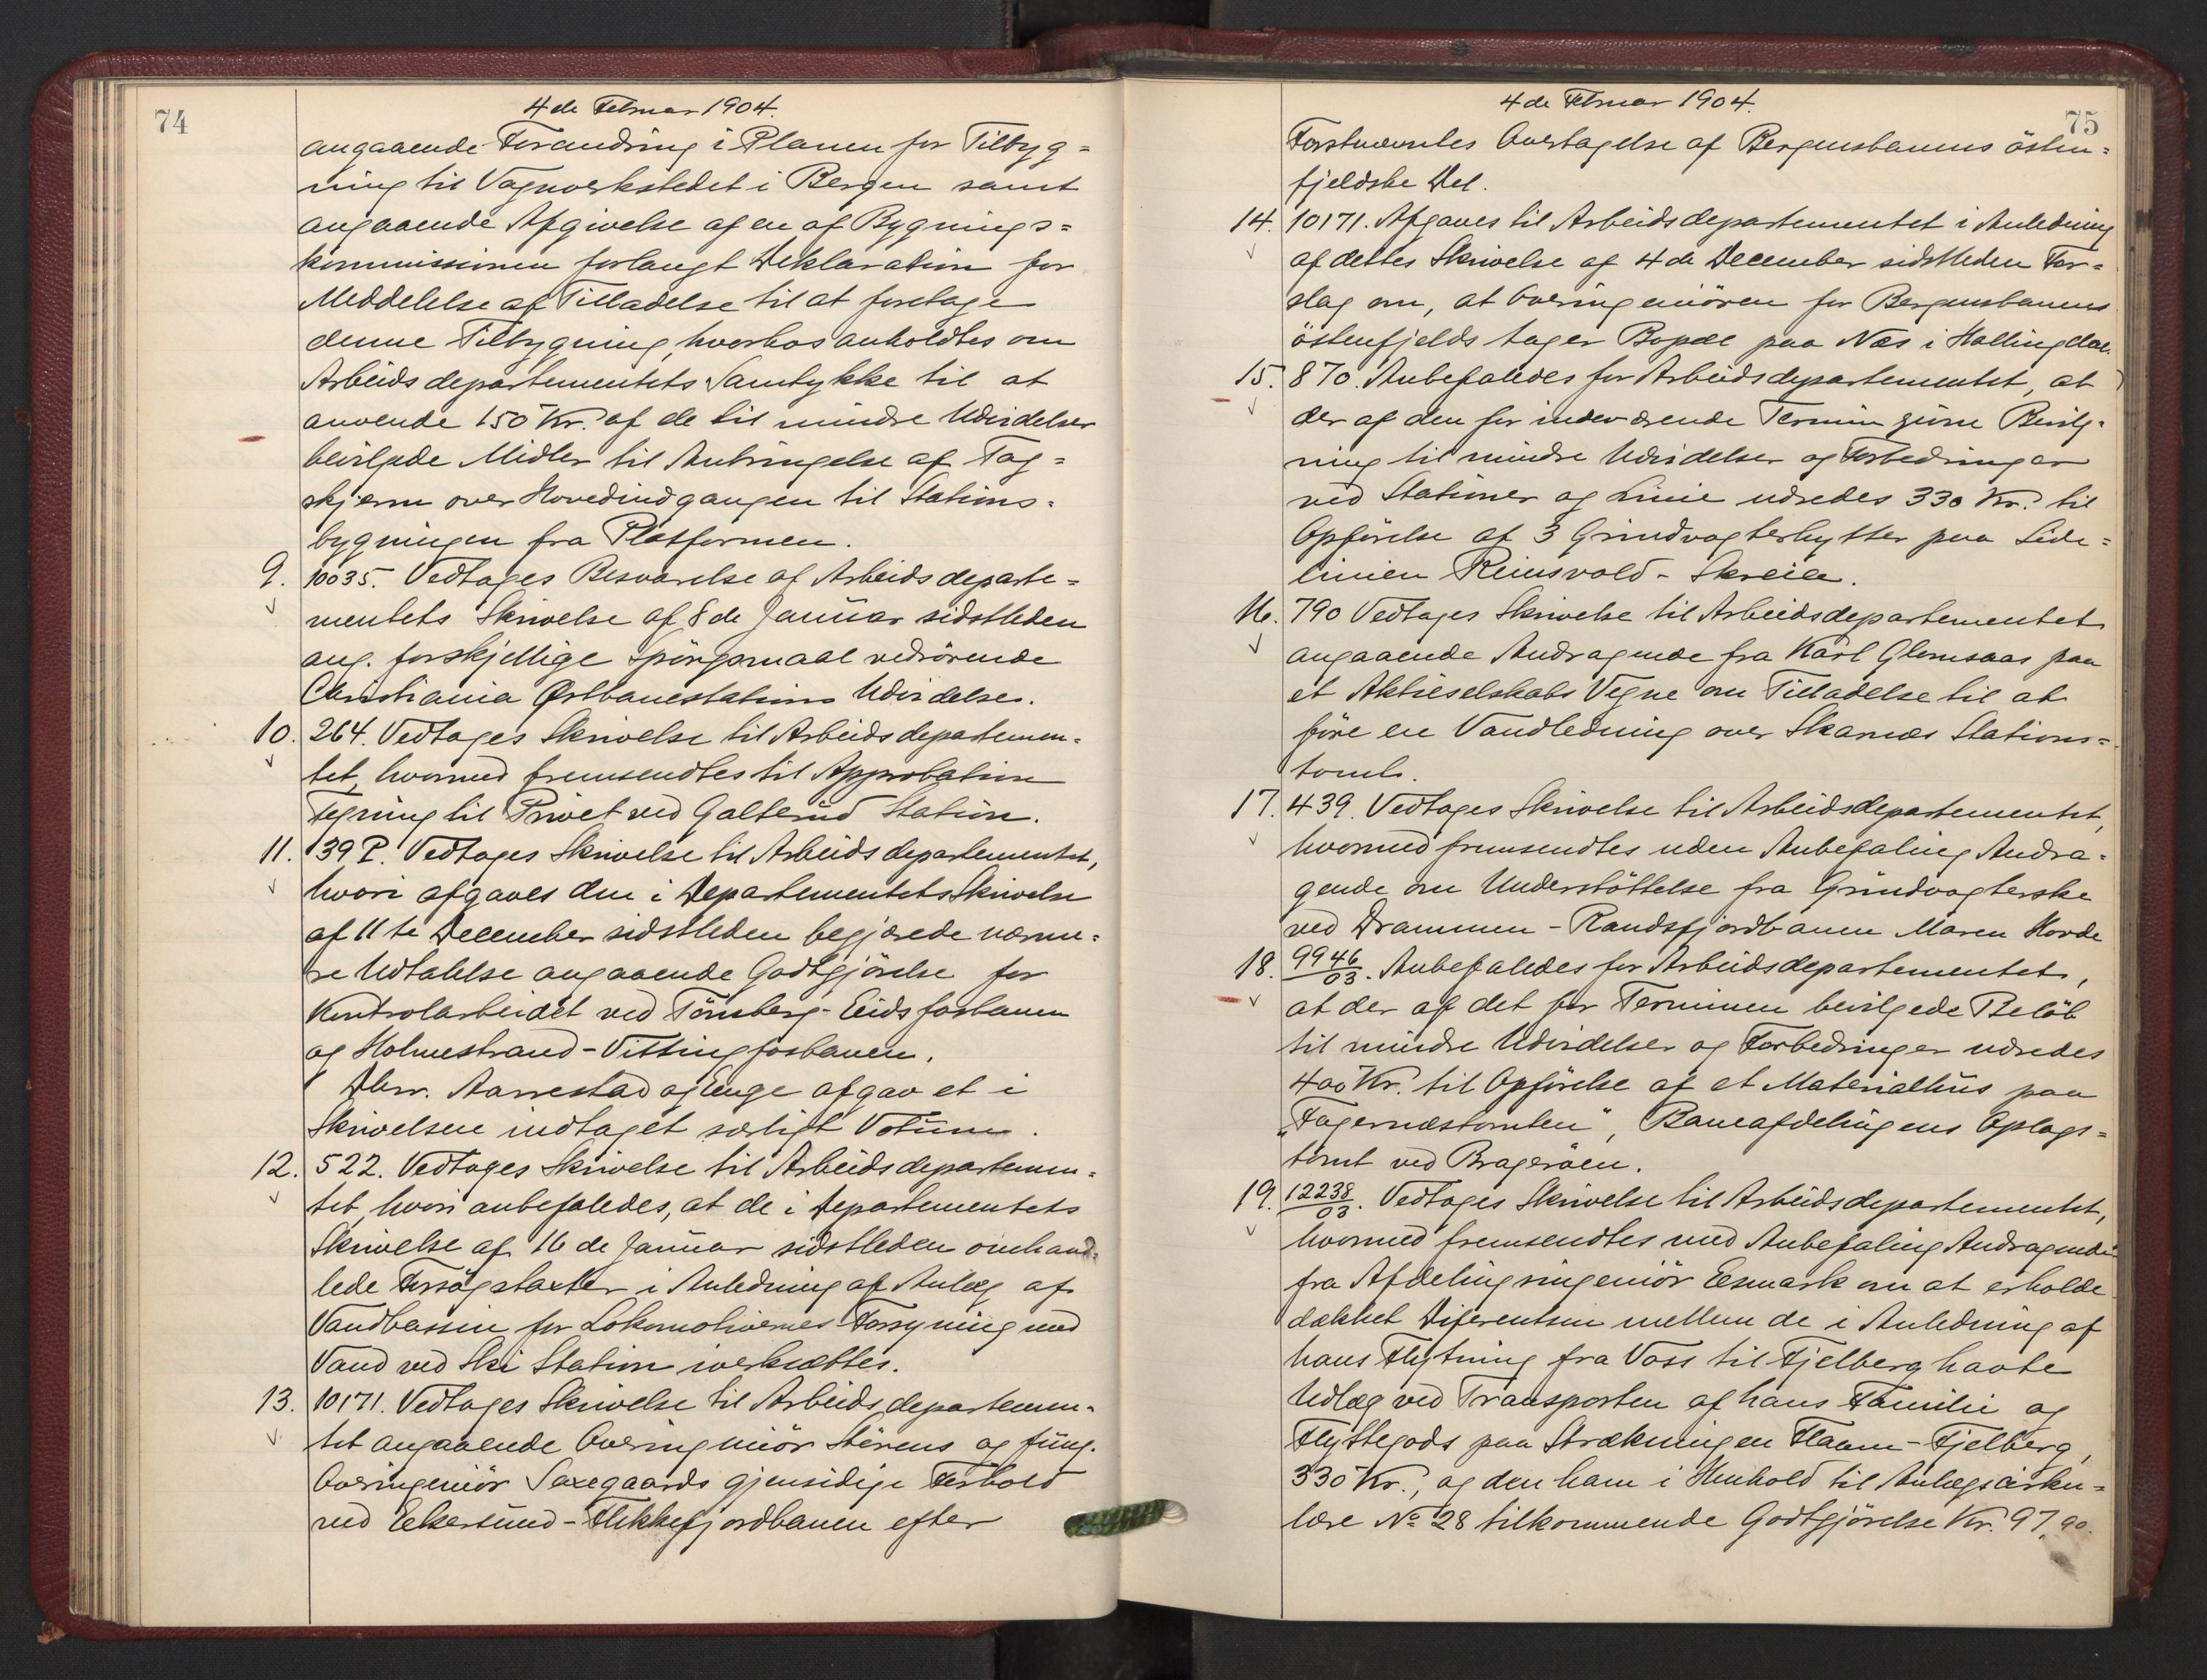 74
4de Februar 1904.
angaaende Forandring i Planen for Tilbyg=
ning til Vognverkstedet i Bergen samt
angaaende Afgivelse af en af Bygnings=
kommissionen forlangt Deklaration for
Meddelelse af Tilladelse til at foretage
denne Tilbygning, hvorhos anholdtes om
Arbeidsdepartementets Samtykke til at
anvende 150 Kr. af de til mindre Udvidelser
bevilgede Midler til Anbringelse af Tag=
skjerm over Hovedindgangen til Stations=
bygningen fra Platformen.
9. 10035. Vedtages Besvarelse af Arbeidsdeparte=
mentets Skrivelse af 8de Januar sidstleden
ang. forskjellige Spörgsmaal vedrörende
Christiania Østbanestations Udvidelse.
10. 264. Vedtages Skrivelse til Arbeidsdepartemen=
tet, hvormed fremsendtes til Approbation
Tegning til Privet ved Galterud Station.
11. 139 P. Vedtages Skrivelse til Arbeidsdepartementet,
hvori afgaves den i Departementets Skrivelse
af 11te December sidstleden begjærede nærme=
re Udtalelse angaaende Godtgjörelse for
Kontrolarbeidet ved Tönsberg-Eidsfosbanen
og Holmestrand-Vittingfosbanen.
Dhrr. Aarrestad og Unge afgav et i
Skrivelsen indtaget særligt Votum.
12. 522. Vedtages Skrivelse til Arbeidsdepartemen=
tet, hvori anbefaledes, at de i Departementets
Skrivelse af 16de Januar sidstleden omhand=
lede Forsögstaxter i Anledning af Anlæg af
Vandbassin for Lokomotivernes Forsyning med
Vand ved Ski Station iverksættes.
13. 10171. Vedtages Skrivelse til Arbeidsdepartemen=
tet angaaende Overingeniör Störens og fung.
Overingeniör Saxegaards gjensidige Forhold
ved Ekersund-Flekkefjordbanen efter
75
4de Februar 1904.
Förstnævntes Overtagelse af Bergensbanens östen=
fjeldske Del.
14. 10171. Afgaves til Arbeidsdepartementet i Anledning
af dettes Skrivelse af 4de December sidstleden For=
slag om, at Overingeniören for Bergensbanens
östenfjelds tager Bopæl paa Næs i Hallingdal.
15. 870. Anbefaledes for Arbeidsdepartementet, at
der af den for indeværende Termin givne Bevilg=
ning til mindre Udvidelser og Forbedringer
ved Stationer og Linie udredes 330 Kr. til
Opförelse af 3 Grindvogterhytter paa Side=
linien Reinsvold-Skreia.
16. 790 Vedtages Skrivelse til Arbeidsdepartementet
angaaende Andragende fra Karl Glomsaas paa
et Aktieselskabs Vegne om Tilladelse til at
före en Vandledning over Skarnæs Stations=
tomt.
17. 439. Vedtages Skrivelse til Arbeidsdepartementet,
hvormed fremsendtes uden Anbefaling Andra=
gende om Understöttelse fra Grindvogterske
ved Drammen-Randsfjordbanen Maren Horde
18. 9946/03. Anbefaledes for Arbeidsdepartementet,
at der af det for Terminen bevilgede Belöb
til mindre Udvidelser og Forbedringer udredes
400 Kr. til Opförelse af et Materialhus paa
„Fagernæstomten", Baneafdelingens Oplags=
tomt ved Bragerøen.
19. 12238/03. Vedtages Skrivelse til Arbeidsdepartementet,
hvormed fremsendtes med Anbefaling Andragende
fra Afdelingsingeniör Esmark om at erholde
dækket Diferentsen mellem de i Anledning af
hans Flytning fra Voss til Fjelberg havte
Udlæg ved Transporten af hans Familie og
Flyttegods paa Strækningen Flaam-Fjelberg,
330 Kr., og den ham i Henhold til Anlægscirku=
lære No 28 tilkommende Godtgjörelse Kr. 97,90.